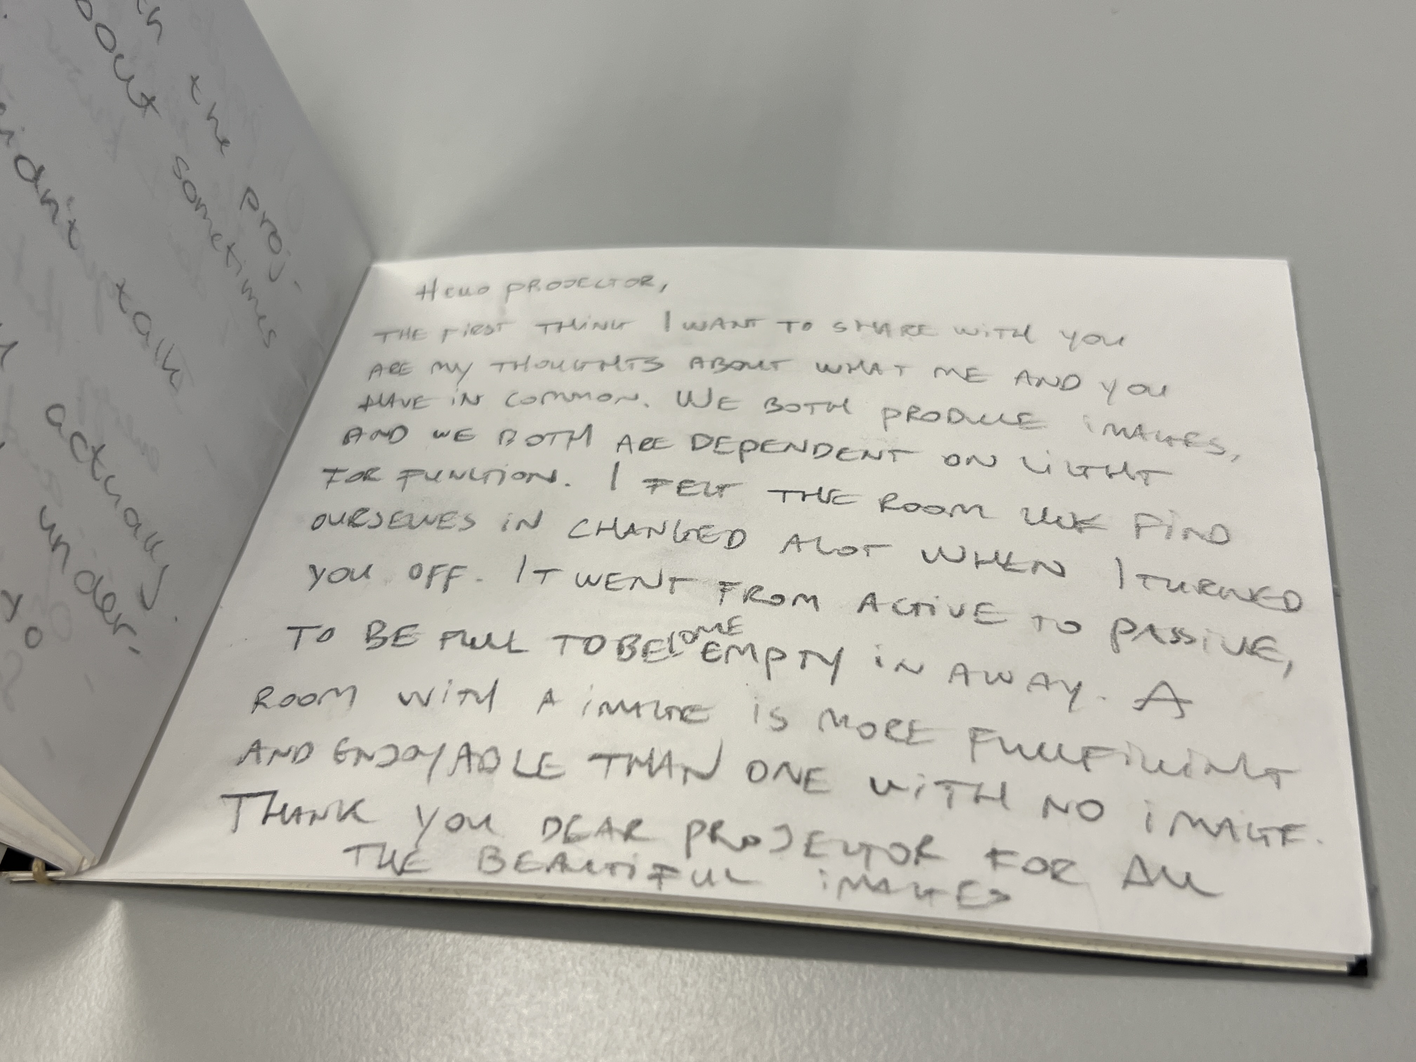 the proj-
about sometimes
talk
actually
under-
Hello PROJECTOR,
THE FIRST THING I WANT TO SHARE WITH YOU
ARE MY THOUGHTS ABOUT WHAT ME AND YOU
HAVE IN COMMON. WE BOTH PRODUCE IMAGES,
AND WE BOTH ARE DEPENDENT ON LIGHT
FOR FUNCTION. I FELT THE ROOM WE FIND
OURSELVES IN CHANGED ALOT WHEN I TURNED
YOU OFF. IT WENT FROM ACTIVE TO PASSIVE,
TO BE FULL TO BECOME EMPTY IN AWAY. A
ROOM WITH A IMAGE IS MORE FULLFILLING
AND ENJOYABLE THAN ONE WITH NO IMAGE.
THANK YOU DEAR PROJECTOR FOR ALL
THE BEAUTIFUL IMAGES